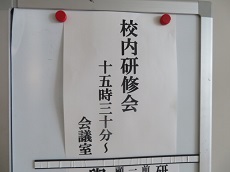 校内研修会
十五時三十分～
会議室